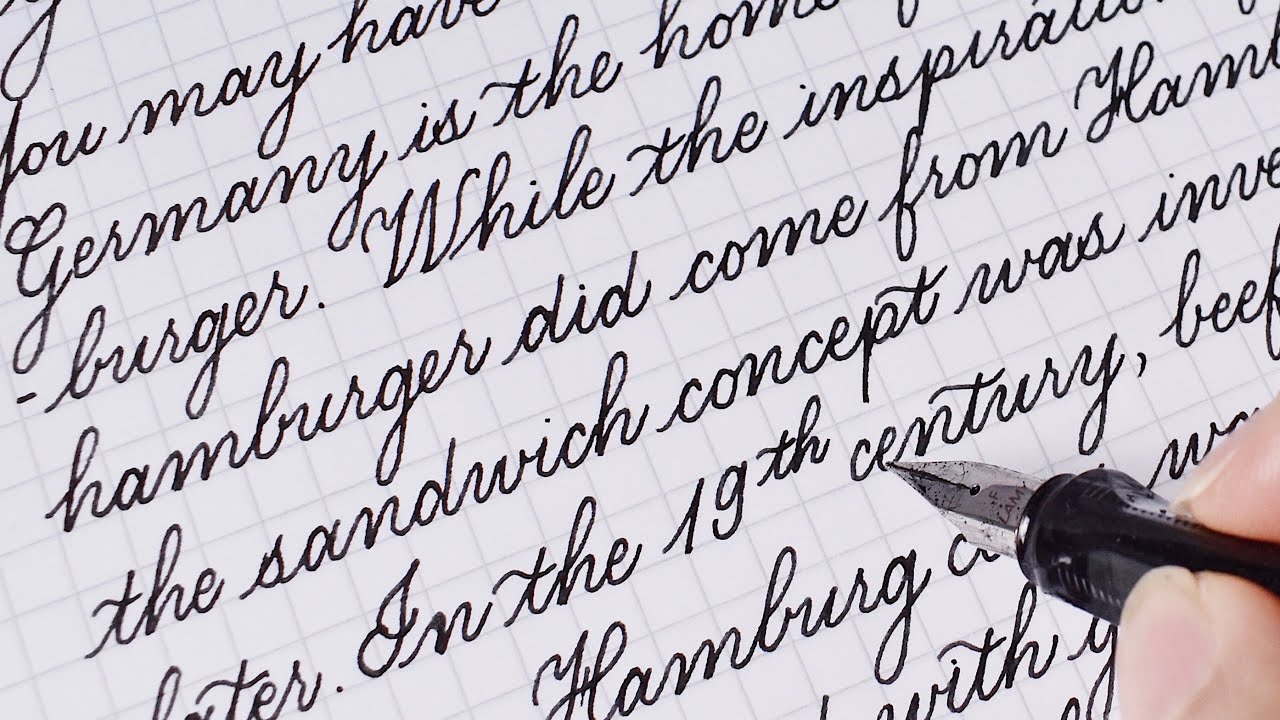 you may have
Germany is the home
-burger. While the inspiration
hamburger did come from Hamb
the sandwich concept was inve
later. In the 19th century, beef
Hamburg
with
LAMY